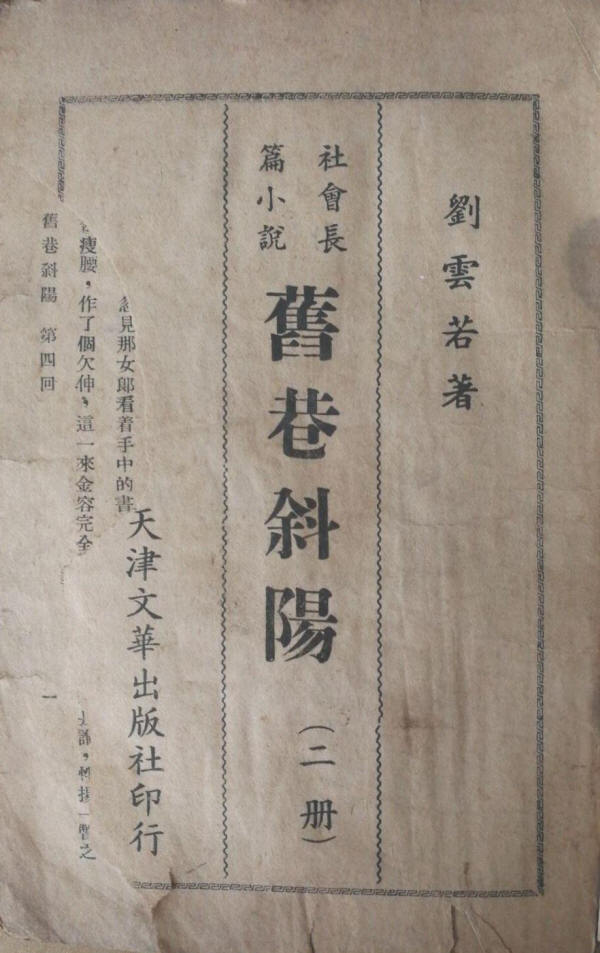 劉雲若著
社會長
篇小說
舊巷斜陽
（二册）
天津文華出版社印行
見那女郎看着手中的書
瘦腰，作了個欠伸，這一來金容完全
舊巷斜陽 第四回
一